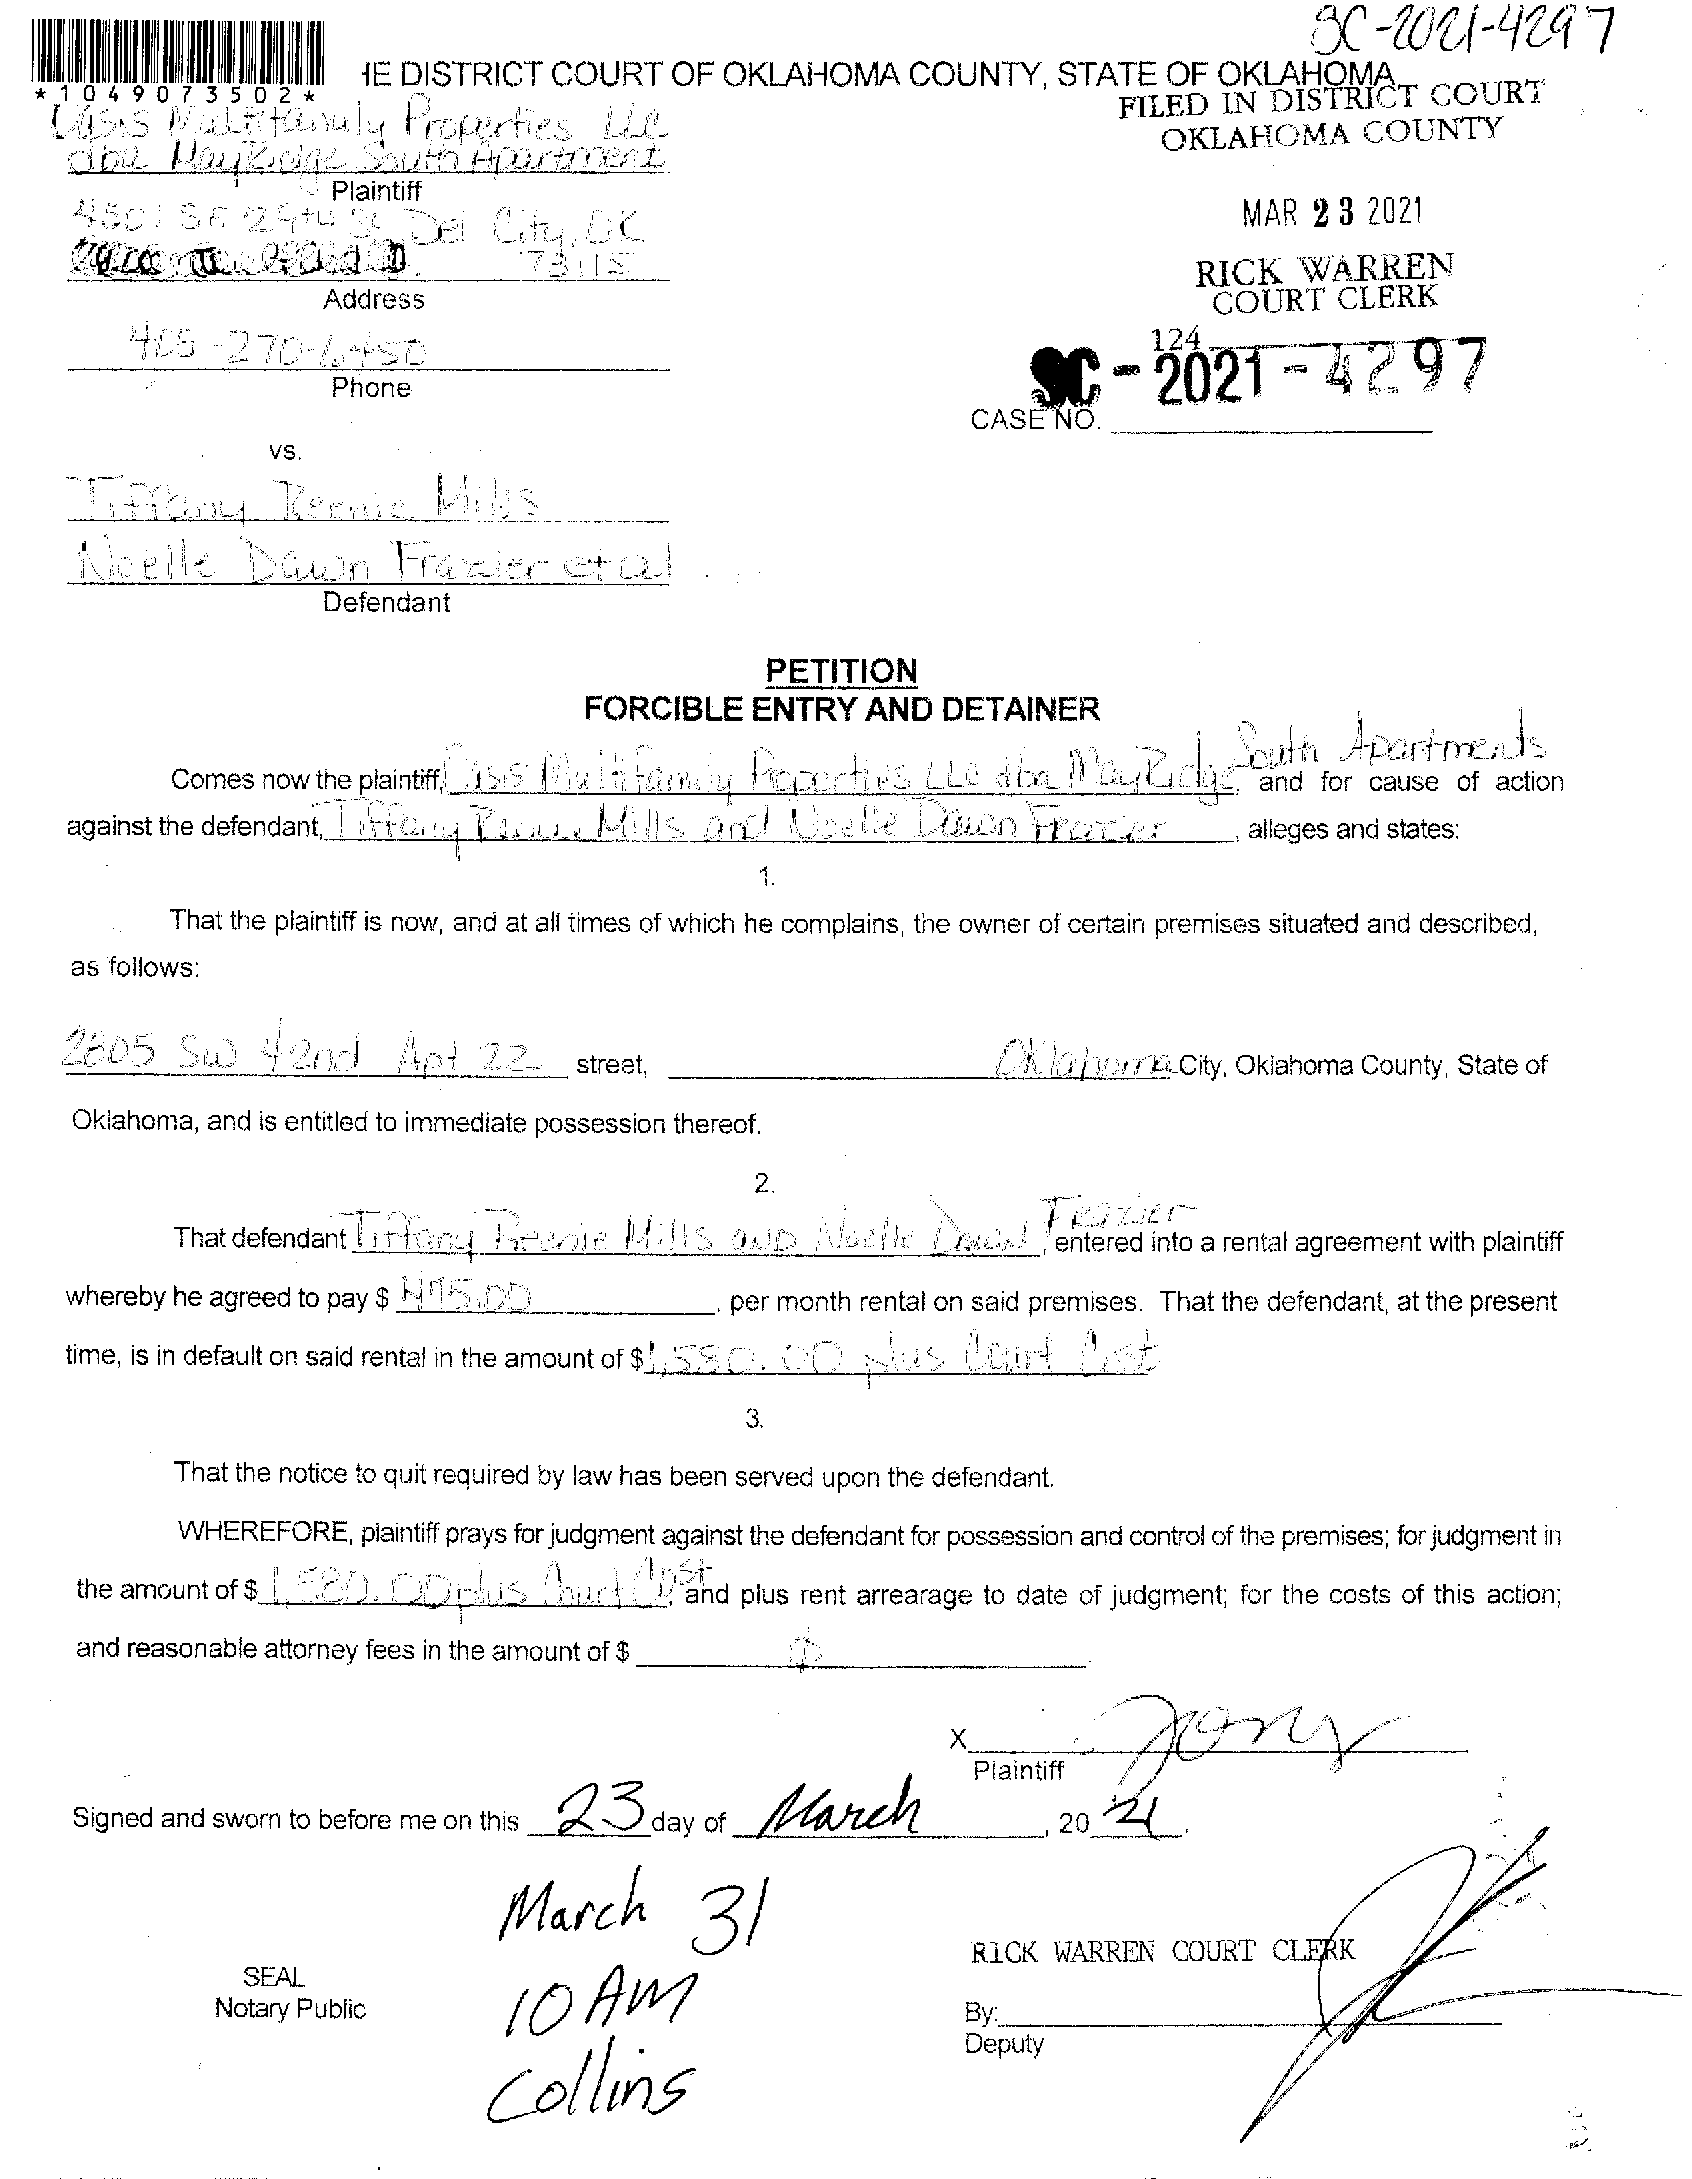 SC-2021-4297
HE DISTRICT COURT OF OKLAHOMA COUNTY, STATE OF OKLAHOMA
*1049073502*
FILED IN DISTRICT COURT
OKLAHOMA COUNTY
Oasis Multifamily Properties LLC
dba MayRidge South Apartment
Plaintiff
MAR 23 2021
4801 SE 29th St Del City, OK
73115
Address
RICK WARREN
COURT CLERK
124
405-270-6450
Phone
SC-2021-4297
CASE NO.
vs.
Tiffany Reenie Mills
Noelle Dawn Frazier et al
Defendant
PETITION
FORCIBLE ENTRY AND DETAINER
Comes now the plaintiff, Oasis Multifamily Properties LLC dba MayRidge South Apartments and for cause of action
against the defendant, Tiffany Reenie Mills and Noelle Dawn Frazier, alleges and states:
1.
That the plaintiff is now, and at all times of which he complains, the owner of certain premises situated and described,
as follows:
2805 SW 42nd Apt 22 street, Oklahoma City, Oklahoma County, State of
Oklahoma, and is entitled to immediate possession thereof.
2.
That defendant Tiffany Reenie Mills and Noelle Dawn Frazier entered into a rental agreement with plaintiff
whereby he agreed to pay $ 475.00, per month rental on said premises. That the defendant, at the present
time, is in default on said rental in the amount of $1,580.00 plus Court Cost
3.
That the notice to quit required by law has been served upon the defendant.
WHEREFORE, plaintiff prays for judgment against the defendant for possession and control of the premises; for judgment in
the amount of $ 1,580.00 plus Court Cost and plus rent arrearage to date of judgment; for the costs of this action;
and reasonable attorney fees in the amount of $
X
Plaintiff
Signed and sworn to before me on this 23 day of March, 2021.
March 31
10 AM
Collins
SEAL
Notary Public
RICK WARREN COURT CLERK
By:
Deputy